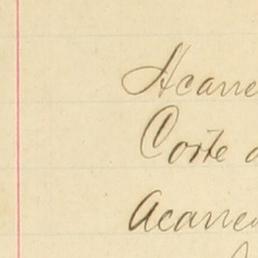 Acarre
Corte d
Acarre